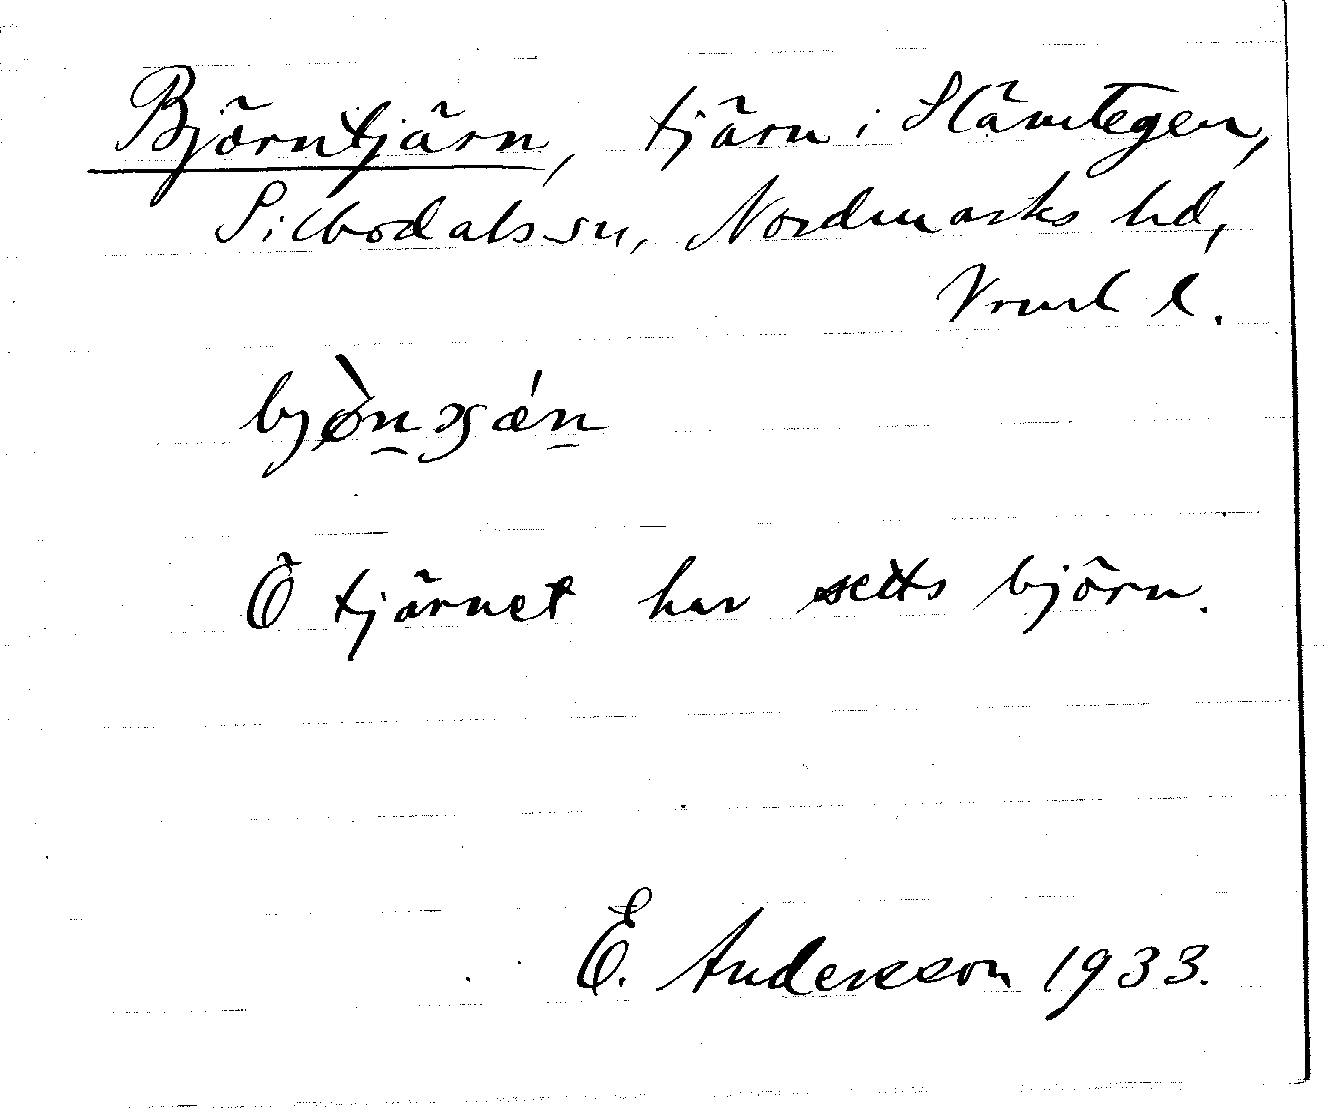 Björntjärn, tjärn i Slämtegen,
Silbodals sn, Nordmarks hd,
Vrml l.
bjø̀n̠ɡǽn̠
Ö tjärnet har setts björn.
E. Andersson 1933.